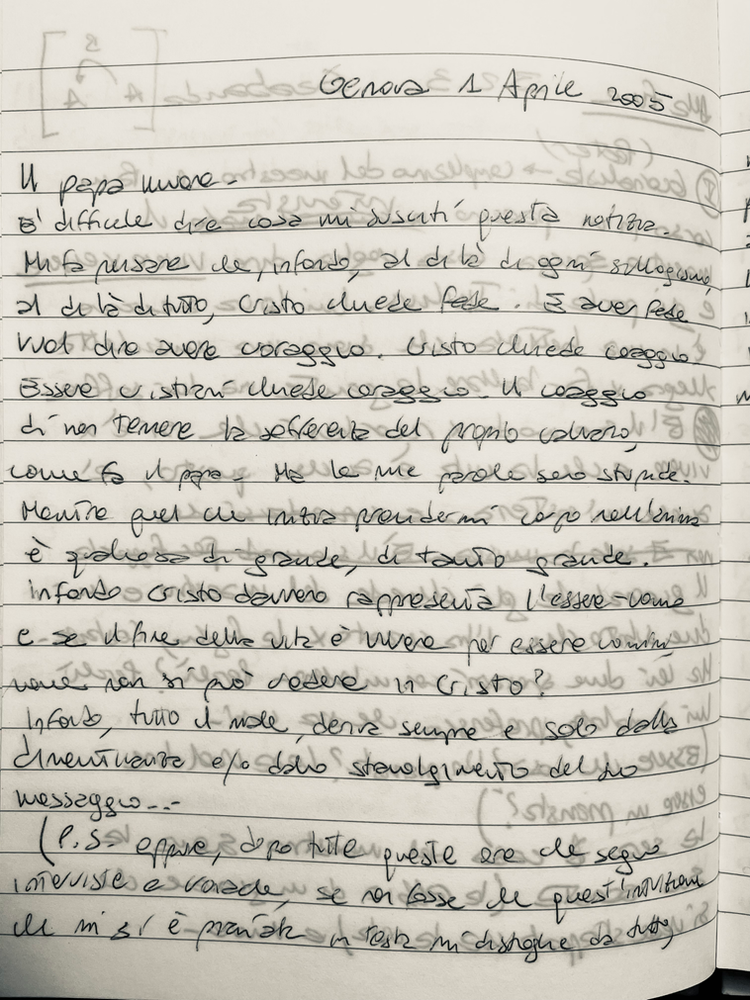 Genova 1 Aprile 2005
Il papa muore.
E' difficile dire cosa mi susciti questa notizia.
Mi fa pensare che, infondo, al di là di ogni sillogismo,
al di là di tutto, Cristo chiede fede. E aver fede
vuol dire avere coraggio. Cristo chiede coraggio.
Essere cristiani chiede coraggio. Il coraggio
di non temere la sofferenza del proprio calvario,
come fa il papa. Ma le mie parole sono stupide.
Mentre quel che inizia prendermi corpo nell'anima
è qualcosa di grande, di tanto grande.
infondo Cristo davvero rappresenta l'essere-uomo
e se il fine della vita è vivere per essere uomini
come non si può credere in Cristo?
Infondo, tutto il male, deriva sempre e solo dalla
dimenticanza e/o dallo stravolgimento del suo
messaggio...
(P.S. eppure, dopo tutte queste ore che seguo
interviste e cronache, se non fosse che quest'intuizione
che mi si è piantata in testa mi distoglie da tutto,